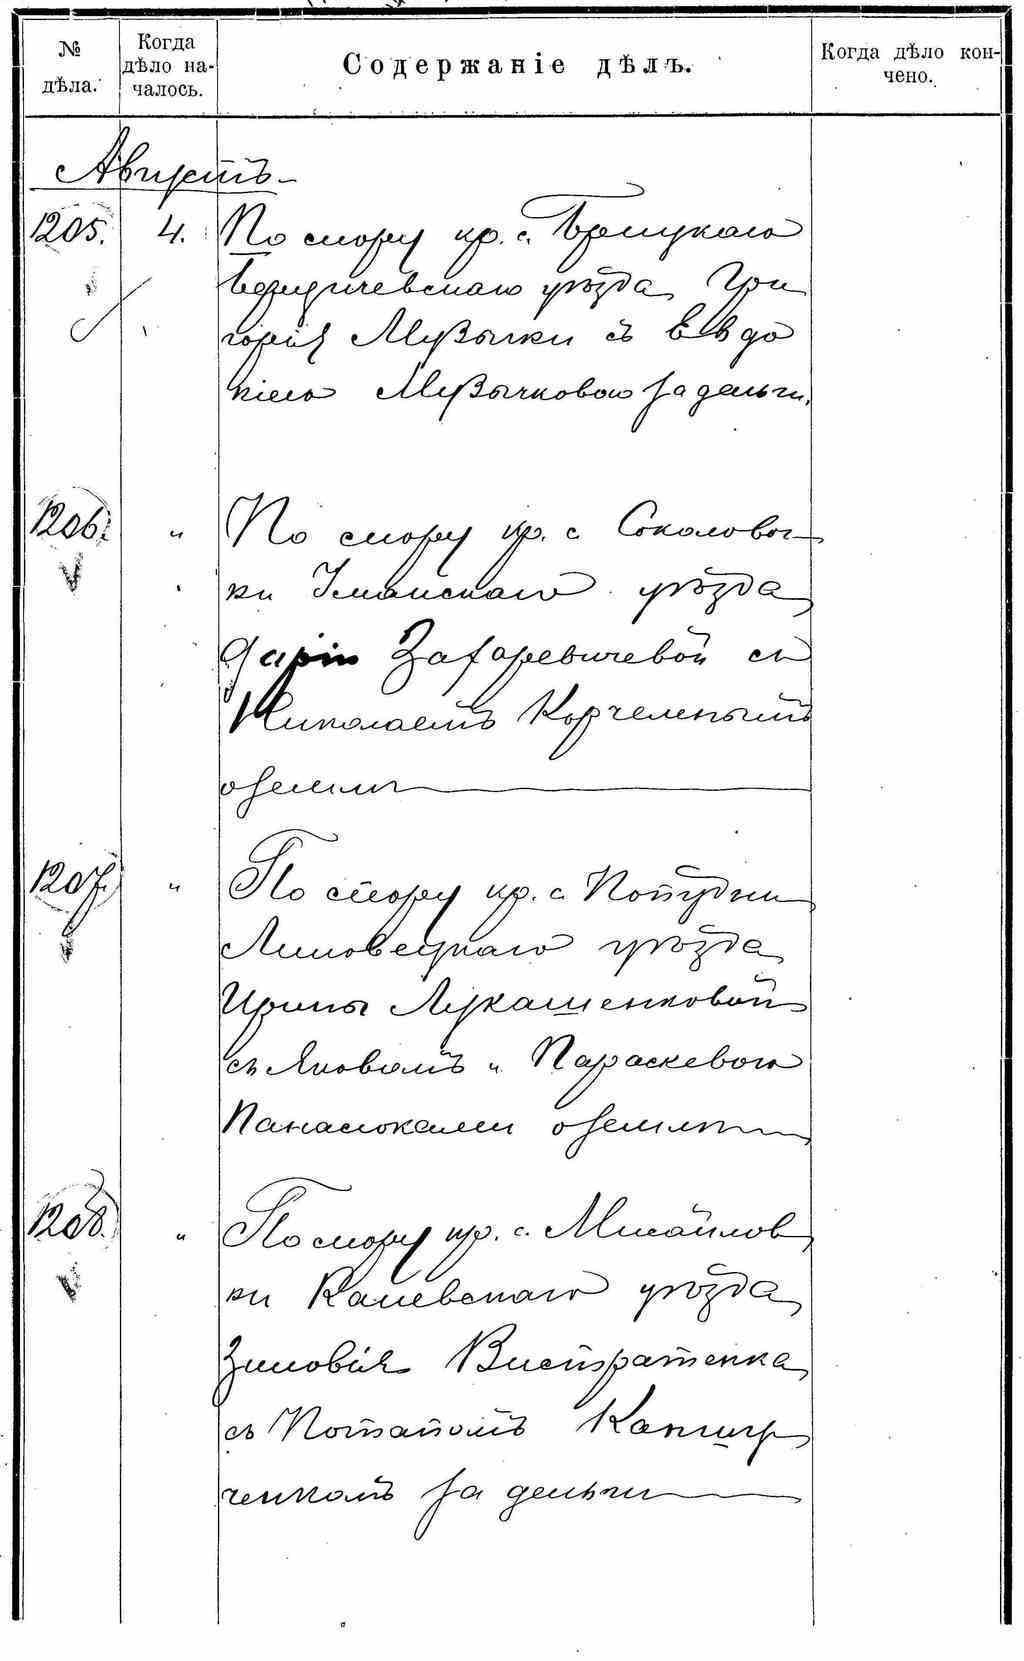 № дѣла.
Когда дѣло началось.
Содержаніе дѣлъ.
Когда дѣло кончено.
Августъ
1205. 4. По спору кр. с.
Бердичевскаго уѣзда Гри
горія Музыки съ Евдо
кіею Музычковою за деньги.
1206. " По спору кр. с. Соколовоч
ки Уманскаго уѣзда
Даріи Захаревичевой съ
Николаемъ Корчемнымъ
о земли
1207. " По спору кр. с. Попудни
Липовецкаго уѣзда
Ирины Лукашенковой
съ Яковомъ и Параскевою
Панасюками о земли
1208. " По спору кр. с. Михайлов
ки Каневскаго уѣзда
Зиновія
съ Потапомъ
ченкомъ за деньги